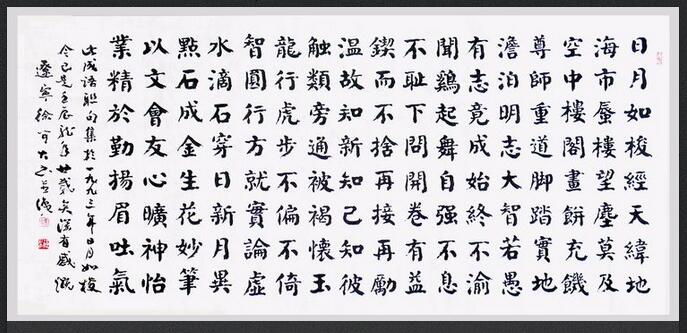 日月如梭經天緯地
海市蜃樓望塵莫及
空中樓閣畫餅充饑
尊師重道脚踏實地
澹泊明志大智若愚
有志竟成始終不渝
聞鷄起舞自强不息
不耻下問開卷有益
鍥而不捨再接再勵
溫故知新知己知彼
觸類旁通被褐懷玉
龍行虎步不偏不倚
智圓行方就實論虛
水滴石穿日新月異
點石成金生花妙筆
以文會友心曠神怡
業精於勤揚眉吐氣
此成語聯句集於一九九三年日月如梭
今已是壬辰龍年廿載矣深有感慨
遼寧徐